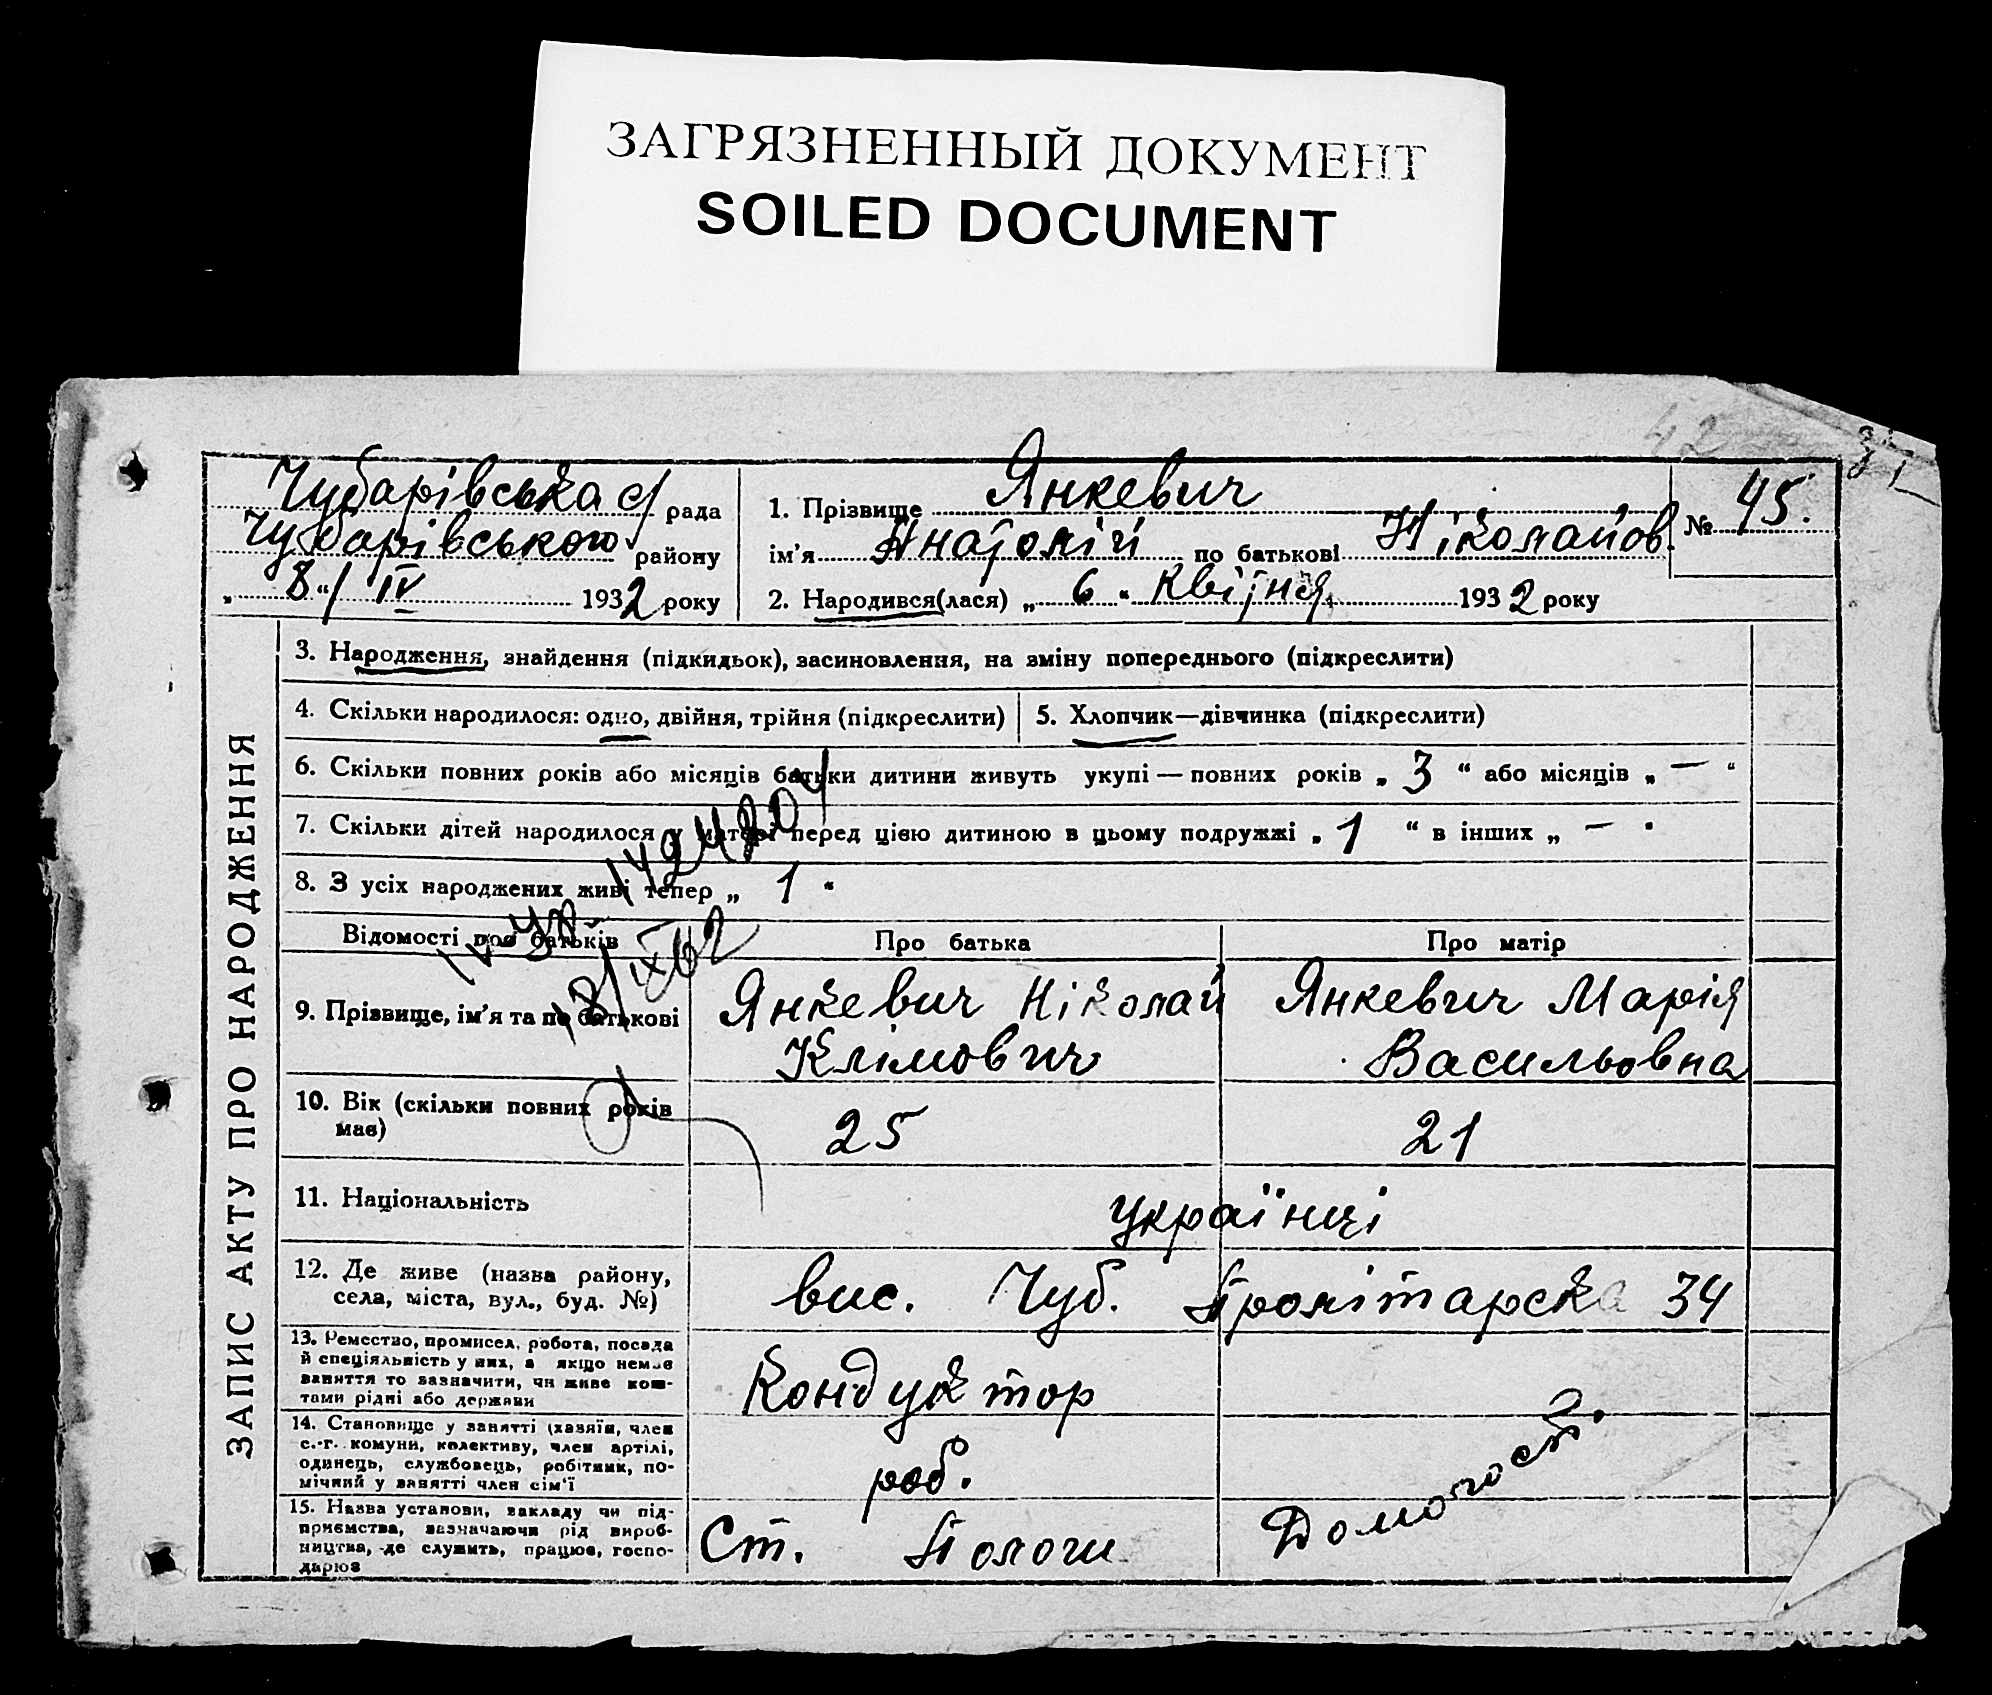 ЗАГРЯЗНЕННЫЙ ДОКУМЕНТ
SOILED DOCUMENT
42
Чубарівська с/рада
Чубарівського району
„8“/ IV 1932 року
1. Прізвище Янкевич
ім'я Анатолій по батькові Ніколайов.
2. Народився(лася) „6“ квітня 1932 року
№ 45.
ЗАПИС АКТУ ПРО НАРОДЖЕННЯ
3. Народження, знайдення (підкидьок), засиновлення, на зміну попереднього (підкреслити)
4. Скільки народилося: одно, двійня, трійня (підкреслити)
5. Хлопчик—дівчинка (підкреслити)
6. Скільки повних років або місяців батьки дитини живуть укупі — повних років „3“ або місяців „—“
7. Скільки дітей народилося у матері перед цією дитиною в цьому подружжі „1“ в інших „—“
8. З усіх народжених живі тепер „1“
18/IX 62
Відомості про батьків
Про батька
Про матір
9. Прізвище, ім'я та по батькові
Янкевич Ніколай
Клімович
Янкевич Марія
Васильовна
10. Вік (скільки повних років
має)
25
21
11. Національність
українці
12. Де живе (назва району,
села, міста, вул., буд. №)
вис. Чуб. Пролітарска 34
13. Ремество, промисел, робота, посада
й спеціяльність у них, а якщо немає
заняття то зазначити, чи живе кош-
тами рідні або держави
Кондуктор
14. Становище у занятті (хазяїн, член
с.-г. комуни, колективу, член артілі,
одинець, службовець, робітник, по-
мічний у занятті член сім'ї
роб.
15. Назва установи, закладу чи під-
приємства, зазначаючи рід вироб-
ництва, де служить, працює, госпо-
дарює
Ст. Пологи
Домогосп.